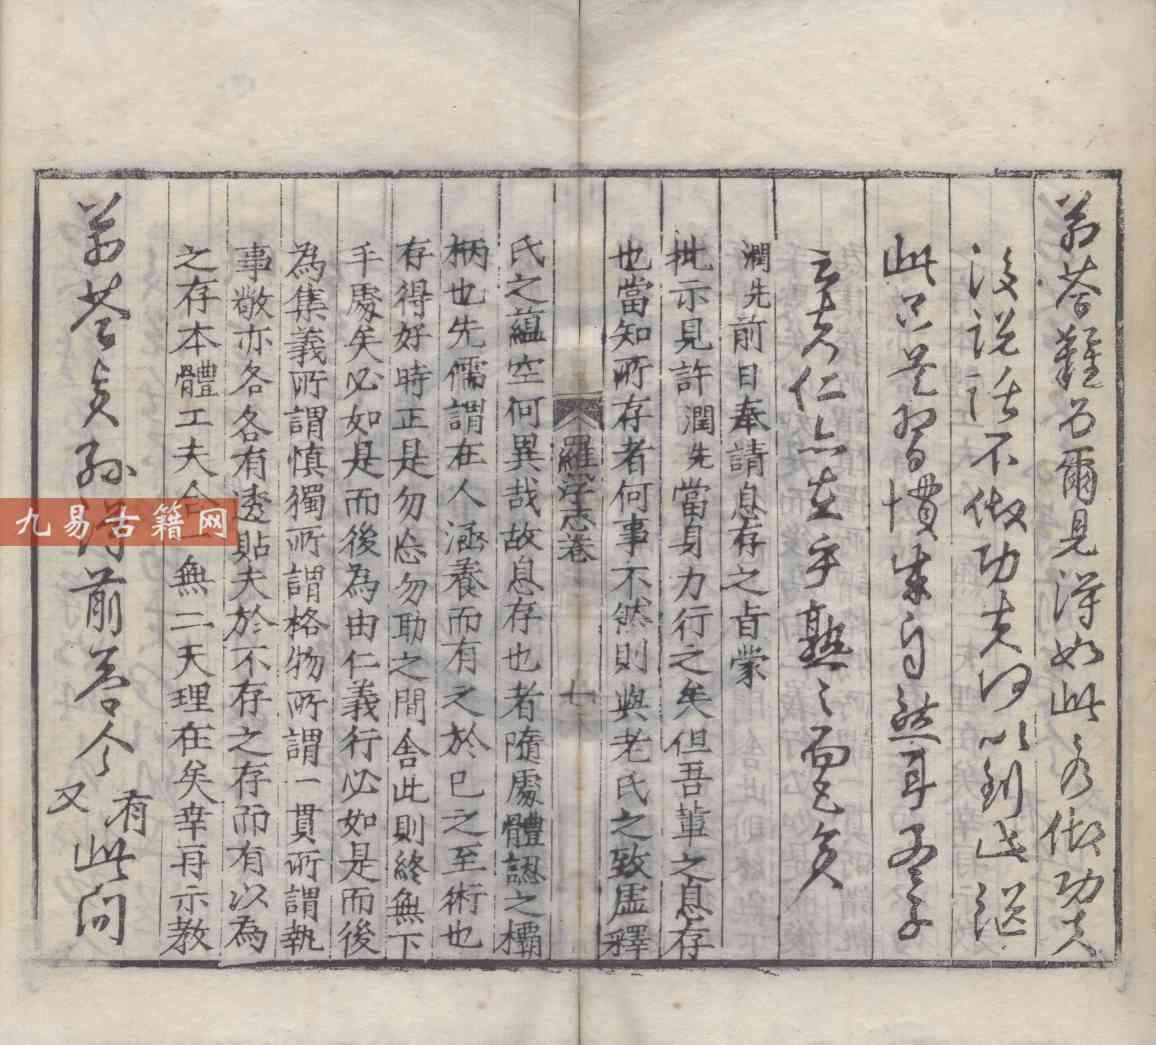 前答難為爾見得如此若做功夫
沒說話不做功夫何以到此從
此只是習慣成自然耳孟子
云夫仁亦在乎熟之而已矣
潤先前日奉請息存之旨蒙
批示見許潤先當身力行之矣但吾輩之息存
也當知所存者何事不然則與老氏之致虛釋
羅浮志卷
七
氏之蘊空何異哉故息存也者隨處體認之欛
柄也先儒謂在人涵養而有之於已之至術也
存得好時正是勿忘勿助之間舍此則終無下
手處矣必如是而後為由仁義行必如是而後
為集義所謂慎獨所謂格物所謂一貫所謂執
事敬亦各各有透貼夫於不存之存而有以為
之存本體工夫合一無二天理在矣幸再示教
前答得前答今又有此問
九易古籍网